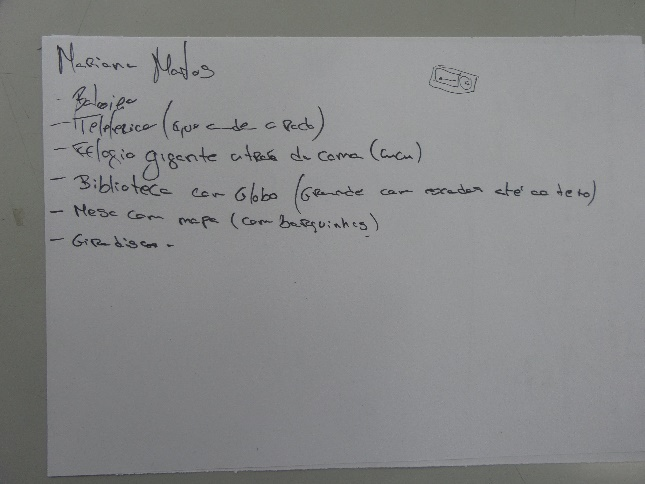 Mariana Matos
- Baloiço
- Teleférico (que ande a roda)
- Relógio gigante atrás da cama (cucu)
- Biblioteca com Globo (Grande com escadas até ao teto)
- Mesa com mapa (com barquinhos)
- Gira discos.